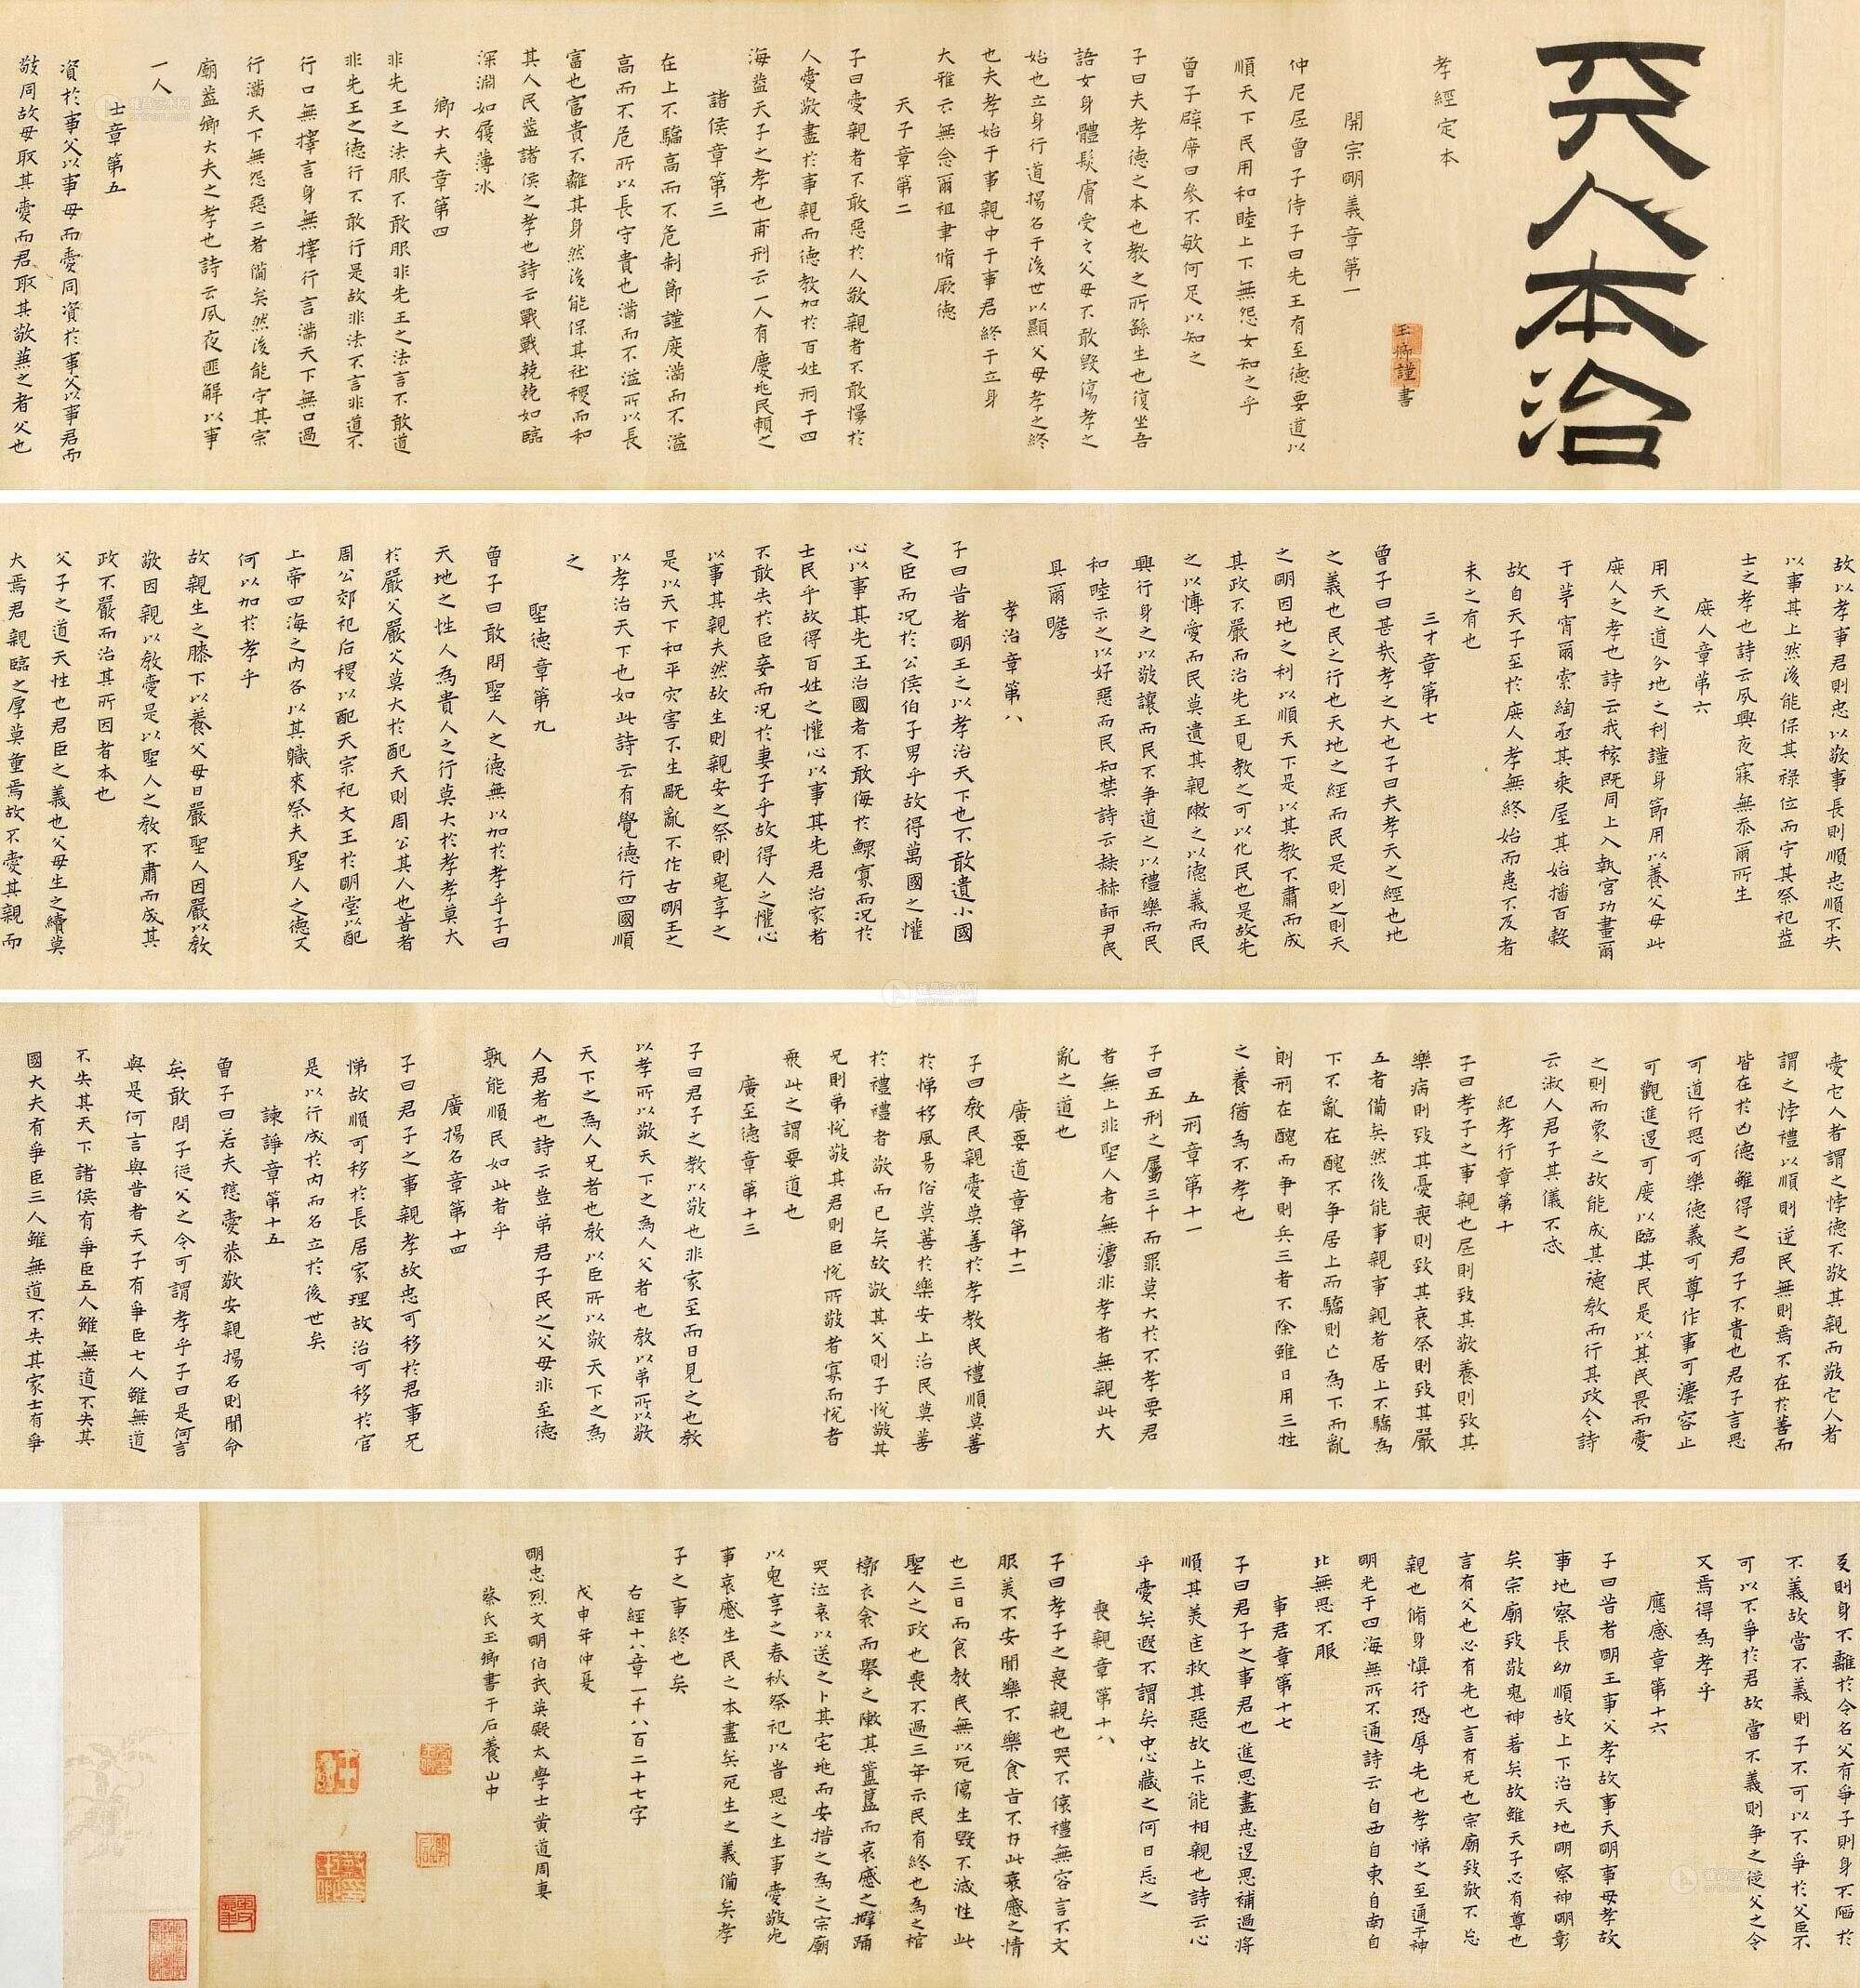 天人本治
孝經定本
玉卿謹書
開宗明義章第一
仲尼凥曾子侍子曰先王有至德要道以
順天下民用和睦上下無怨女知之乎
曾子辟席曰參不敏何足以知之
子曰夫孝德之本也教之所繇生也復坐吾
語女身體髮膚受之父母不敢毀傷孝之
始也立身行道揚名于後世以顯父母孝之終
也夫孝始于事親中于事君終于立身
大雅云無念爾祖聿脩厥德
天子章第二
子曰愛親者不敢惡於人敬親者不敢慢於
人愛敬盡於事親而德教加於百姓刑于四
海蓋天子之孝也甫刑云一人有慶兆民賴之
諸侯章第三
在上不驕高而不危制節謹度滿而不溢
高而不危所以長守貴也滿而不溢所以長守
富也富貴不離其身然後能保其社稷而和
其人民蓋諸侯之孝也詩云戰戰兢兢如臨
深淵如履薄冰
卿大夫章第四
非先王之法服不敢服非先王之法言不敢道
非先王之德行不敢行是故非法不言非道不
行口無擇言身無擇行言滿天下無口過
行滿天下無怨惡二者備矣然後能守其宗
廟蓋卿大夫之孝也詩云夙夜匪解以事
一人
士章第五
資於事父以事母而愛同資於事父以事君而
敬同故母取其愛而君取其敬兼之者父也
故以孝事君則忠以敬事長則順忠順不失
以事其上然後能保其祿位而守其祭祀蓋
士之孝也詩云夙興夜寐無忝爾所生
庶人章第六
用天之道分地之利謹身節用以養父母此
庶人之孝也詩云我稼既同上入執宮功晝爾
于茅宵爾索綯亟其乘屋其始播百穀
故自天子至於庶人孝無終始而患不及者
未之有也
三才章第七
曾子曰甚哉孝之大也子曰夫孝天之經也地
之義也民之行也天地之經而民是則之則天
之明因地之利以順天下是以其教不肅而成
其政不嚴而治先王見教之可以化民也是故先
之以博愛而民莫遺其親敶之以德義而民
興行身之以敬讓而民不爭道之以禮樂而民
和睦示之以好惡而民知禁詩云赫赫師尹民
具爾瞻
孝治章第八
子曰昔者明王之以孝治天下也不敢遺小國
之臣而況於公侯伯子男乎故得萬國之懽
心以事其先王治國者不敢侮於鰥寡而況於
士民乎故得百姓之懽心以事其先君治家者
不敢失於臣妾而況於妻子乎故得人之懽心
以事其親夫然故生則親安之祭則鬼享之
是以天下和平灾害不生旤亂不作古明王之
以孝治天下也如此詩云有覺德行四國順
之
聖德章第九
曾子曰敢問聖人之德無以加於孝乎子曰
天地之性人為貴人之行莫大於孝孝莫大
於嚴父嚴父莫大於配天則周公其人也昔者
周公郊祀后稷以配天宗祀文王於明堂以配
上帝四海之內各以其職來祭夫聖人之德又
何以加於孝乎
故親生之膝下以養父母日嚴聖人因嚴以教
敬因親以教愛是以聖人之教不肅而成其
政不嚴而治其所因者本也
父子之道天性也君臣之義也父母生之續莫
大焉君親臨之厚莫重焉故不愛其親而
愛它人者謂之悖德不敬其親而敬它人者
謂之悖禮以順則逆民無則焉不在於善而
皆在於凶德雖得之君子不貴也君子言思
可道行思可樂德義可尊作事可灋容止
可觀進退可度以臨其民是以其民畏而愛
之則而象之故能成其德教而行其政令詩
云淑人君子其儀不忒
紀孝行章第十
子曰孝子之事親也凥則致其敬養則致其
樂病則致其憂喪則致其哀祭則致其嚴
五者備矣然後能事親事親者居上不驕為
下不亂在醜不爭居上而驕則亡為下而亂
則刑在醜而爭則兵三者不除雖日用三牲
之養猶為不孝也
五刑章第十一
子曰五刑之屬三千而罪莫大於不孝要君
者無上非聖人者無灋非孝者無親此大
亂之道也
廣要道章第十二
子曰教民親愛莫善於孝教民禮順莫善
於悌移風易俗莫善於樂安上治民莫善
於禮禮者敬而已矣故敬其父則子悅敬其
兄則弟悅敬其君則臣悅所敬者寡而悅者
衆此之謂要道也
廣至德章第十三
子曰君子之教以敬也非家至而日見之也教
以孝所以敬天下之為人父者也教以弟所以敬
天下之為人兄者也教以臣所以敬天下之為
人君者也詩云豈弟君子民之父母非至德
孰能順民如此者乎
廣揚名章第十四
子曰君子之事親孝故忠可移於君事兄
悌故順可移於長居家理故治可移於官
是以行成於內而名立於後世矣
諫諍章第十五
曾子曰若夫慈愛恭敬安親揚名則聞命
矣敢問子從父之令可謂孝乎子曰是何言
與是何言與昔者天子有爭臣七人雖無道
不失其天下諸侯有爭臣五人雖無道不失其
國大夫有爭臣三人雖無道不失其家士有爭
友則身不離於令名父有爭子則身不陷於
不義故當不義則子不可以不爭於父臣不
可以不爭於君故當不義則爭之從父之令
又焉得為孝乎
應感章第十六
子曰昔者明王事父孝故事天明事母孝故
事地察長幼順故上下治天地明察神明彰
矣宗廟致敬鬼神著矣故雖天子必有尊也
言有父也必有先也言有兄也宗廟致敬不忘
親也脩身慎行恐辱先也孝悌之至通于神
明光于四海無所不通詩云自西自東自南自
北無思不服
事君章第十七
子曰君子之事君也進思盡忠退思補過將
順其美匡救其惡故上下能相親也詩云心
乎愛矣遐不謂矣中心藏之何日忘之
喪親章第十八
子曰孝子之喪親也哭不偯禮無容言不文
服美不安聞樂不樂食旨不甘此哀慼之情
也三日而食教民無以死傷生毀不滅性此
聖人之政也喪不過三年示民有終也為之棺
槨衣衾而舉之敶其簠簋而哀慼之擗踊
哭泣哀以送之卜其宅兆而安措之為之宗廟
以鬼享之春秋祭祀以時思之生事愛敬死
事哀慼生民之本盡矣死生之義備矣孝
子之事終也矣
右經十八章一千八百二十七字
戊申年仲夏
明忠烈文明伯武英殿太學士黃道周妻
蔡氏玉卿書于石養山中